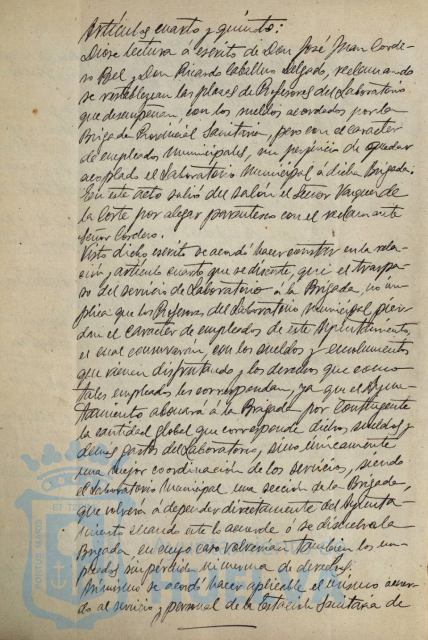 Artículos cuarto y quinto:
Diose lectura a escrito de Don José Juan Corde-
ro Bel y Don Ricardo Caballero Delgado, reclamando
se restablezcan las plazas de Profesores del Laboratorio
que desempeñan, con los sueldos acordados por la
Brigada Provincial Sanitaria, pero con el caracter
de empleados municipales, sin perjuicio de quedar
acoplado el Laboratorio Municipal a dicha Brigada.
En este acto salió del salón el Señor Vazquez de
la Corte por alegar parentesco con el reclamante
Señor Cordero.
Visto dicho escrito se acordó hacer constar en la rela-
ción y artículo cuarto que se discute, que el traspa-
so del servicio de Laboratorio á la Brigada, no im-
plica que los Profesores del Laboratorio Municipal pier-
dan el caracter de empleados de este Ayuntamiento,
el cual conservaran, con los sueldos y emolumentos
que vienen disfrutando y los derechos que como
tales empleados les correspondan, ya que el Ayun-
tamiento abonará á la Brigada por Contingente
la cantidad global que corresponde dichos sueldos y
demas gastos del Laboratorio, sino únicamente
una mejor coordinación de los servicios, siendo
el Laboratorio Municipal una sección de la Brigada,
que volverá a depender directamente del Ayunta-
miento cuando este lo acuerde ó se disuelva la
Brigada en cuyo caso volverian tambien los em-
pleados sin pérdida ni merma de derechos.
Asimismo se acordó hacer aplicable el mismo acuer-
do al servicio y personal de la Estación Sanitaria de